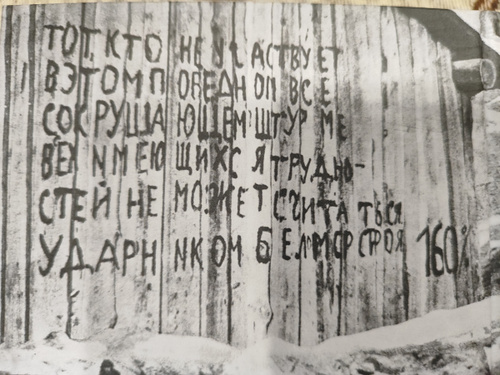 ТОТ КТО НЕ УЧАСТВУЕТ
В ЭТОМ ПОБЕДНОМ ВСЕ
СОКРУШАЮЩЕМ ШТУРМЕ
ВСХ ИМЕЮЩИХСЯ ТРУДНО-
СТЕЙ НЕ МОЖЕТ СЧИТАТЬСЯ
УДАРНИКОМ 160%